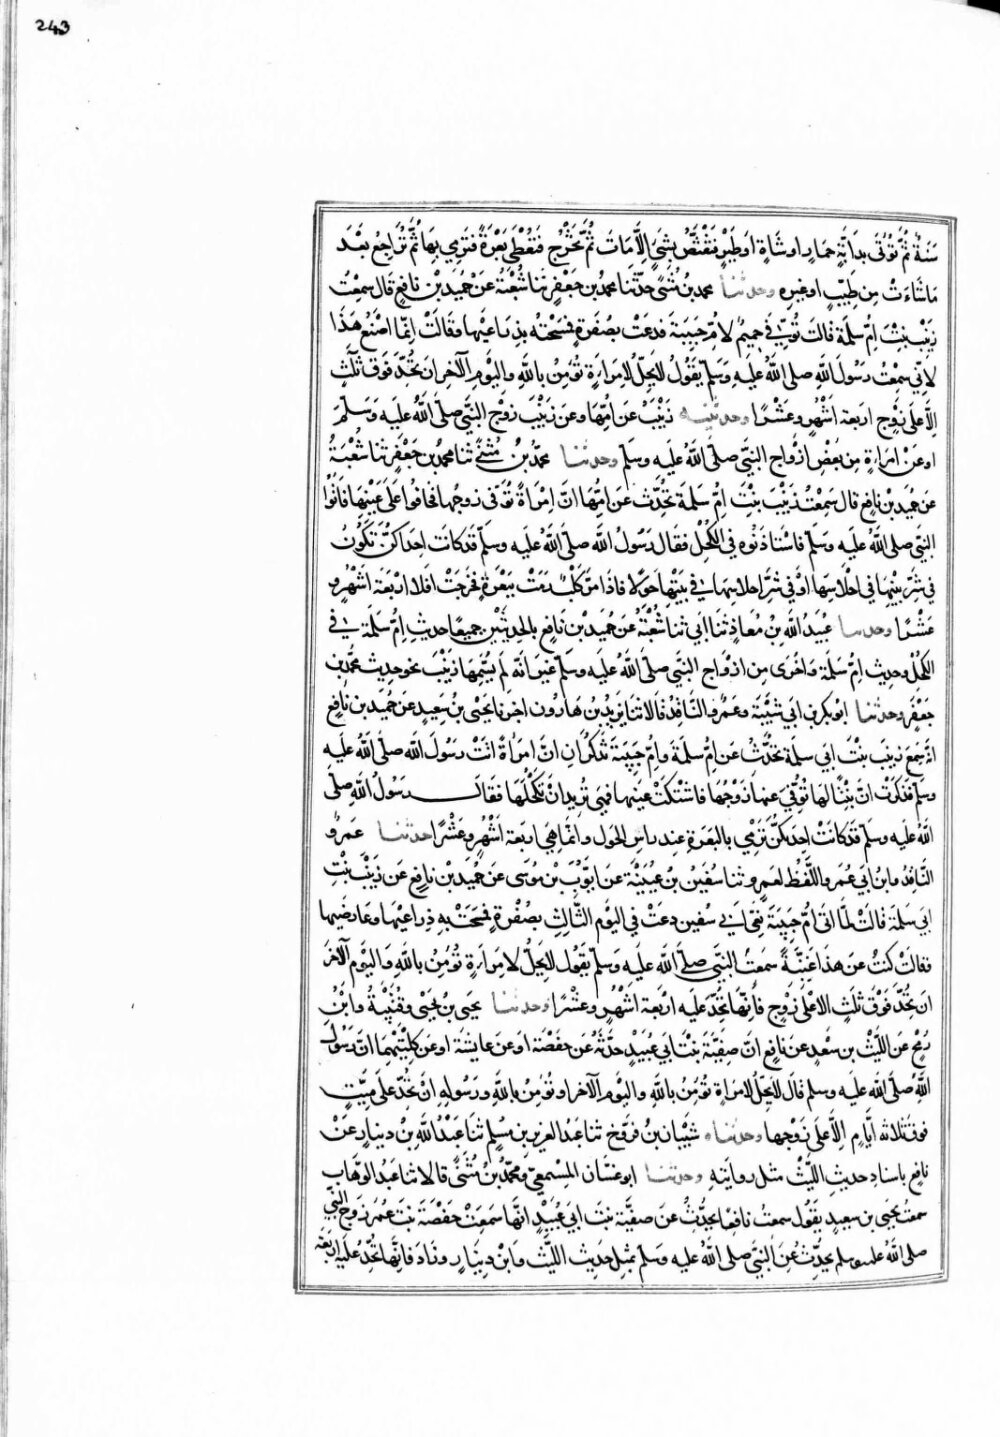 243
سَنَةٌ ثُمَّ تُؤْتَى بِدَابَّةٍ حمار او شاة او طير فتفتض به فقلّما تفتض بشيٍ الّا مات ثُمَّ تخرج فتُعْطَى بَعْرَةً فترمي بها ثُمَّ تُراجعُ بَعْدَ
مَا شَاءَتْ مِن طِيبٍ او غيره وحدثنا محمد بن مُثَنًّى حدّثنا محمد بن جَعْفَرٍ ثنا شُعْبَةُ عَنْ حُمَيدِ بْن نافِعٍ قال سمِعْتُ
زَيْنَبَ بنْتَ امّ سلمةَ قالت تُوُفِّيَ حَمِيمٌ لامّ حَبِيبَةَ فدعَتْ بصُفرَةٍ فمسَحَتْهُ بذِرَاعَيْها وقالَتْ انّما اصْنَعُ هذَا
لانّي سمِعْتُ رَسُولَ اللَّهِ صلى اللَّهُ عليهِ وسلّم يقُولُ لا يَحِلُّ لِامرَاَةٍ تُؤمِنُ باللَّهِ واليَوْمِ الآخرِ ان تُحِدّ فوقَ ثلاثٍ
الّا على زَوْجٍ اربعة اشْهُرٍ وعَشْرًا وحدثتيه زَيْنَبُ عَن اُمِّهَا وعَن زَيْنَبَ زَوْجِ النبيِّ صلى اللَّهُ عليه وَسَلَّمَ
او عَنْ امرَاَةٍ مِن بَعْضِ ازْوَاجِ النبيِّ صلى اللَّهُ عليهِ وسلّم وحدثنا محمّد بنُ مُثَنًّى ثنا محمد بن جَعْفَرٍ ثنا شُعْبَةُ
عَن حُمَيد بْن نافِعٍ قال سَمِعْتُ زَيْنَبَ بنتِ امّ سلمةَ تُحَدِّث عَن امّها انّ امْرَاَةً تُوُفّيَ زوجُها فخافُوا على عَيْنِها فاتَوُا
النبيَّ صلى اللَّهُ عليهِ وسلّم فاسْتَاذَنُوه في الكُحْلِ فقال رَسُولُ اللَّهِ صلّى اللَّهُ عليهِ وسلّم قد كانت احدَاكُنَّ تَكُونُ
في شَرِّ بيْتِها في احْلَاسِها اوْ في شرّ احلاسِها في بَيْتِها حَوْلًا فاذا مرّ كلْبٌ رَمَتْ ببَعْرَةٍ فخَرَجَتْ افلا ارْبَعَةَ اشْهُرٍ و
عَشْرًا وحدثنا عُبَيدُ اللَّهِ بنُ مُعَاذٍ ثنا ابي ثنا شُعْبَةُ عَن حُمَيد بْن نافِعٍ بالحدِيثَيْنِ جميعًا حديثِ امّ سَلَمَةَ في
الكُحْلِ وحديثِ امّ سَلَمَةَ واخرَى مِن ازْوَاجِ النبيِّ صلى اللَّهُ عليهِ وسلّم غيْرَ انّه لم يُسَمِّها زَيْنَبَ نحو حديث محمّد بن
جَعْفَرٍ وحدثنا ابو بكر بن ابي شَيْبَةَ وعَمْرٌو النَّاقِدُ قالا ثنا يَزِيدُ بْن هارُونَ اخبرنا يَحْيى بْن سَعِيدٍ عَن حُمَيدِ بْن نافِعٍ
انّه سَمِعَ زينَبَ بنْتَ ابي سلمة تُحَدِّثُ عَن امّ سلمةَ وامّ حَبِيبَةَ تذكُرانِ انّ امرَاةً اتَتْ رسُولَ اللَّهِ صلى اللَّهُ عليه
وسلّم فذكَرَتْ انّ بنْتًا لها تُوُفّيَ عنها زَوْجُهَا فاشْتَكَتْ عينُها فهي تُريدُ انْ تَكْحُلَها فقالـ رسُولُ اللَّهِ صلى
اللَّهُ عليهِ وسلّم قد كانَتْ احداكُنَّ تَرْمِي بالبَعَرَةِ عند راسِ الحَوْلِ وانّما هي اربَعة اَشْهُرٍ وعَشْرًا حدثنا عمرو
النَّاقِدُ وابنُ ابي عُمَرَ واللَّفْظُ لعَمرٍو ثنا سُفْيَنُ بْن عُيَيْنَةَ عَن ايّوبَ بْن مُوسَى عَن حُمَيدِ بْن نافِعٍ عَن زَيْنَبَ بنْتِ
ابي سَلَمَةَ قالت لمّا اتى اُمَّ حَبِيبَةَ نَعِيُّ ابي سُفين دعَتْ في اليَوْمِ الثَّالِثِ بصُفْرَةٍ فمَسَحَتْ بِهِ ذِراعَيْها وعارضَيْها
وقالَتْ كُنْتُ عَن هذا غَنِيَّةً سمعتُ النبيَّ صلى اللَّه عليهِ وسلّم يقُولُ لا يَحِلُّ لامرَاَةٍ تُؤمِنُ باللَّهِ واليَوْمِ الآخرِ
ان تُحِدَّ فَوْقَ ثَلَثٍ الّا على زَوْجٍ فانّها تُحِدّ عليهِ ارْبَعَة اشْهُرٍ وعَشْرًا وحدثنا يحيى بن يَحْيى وقُتَيْبَةُ وابْنُ
رُمحٍ عَن اللَّيْث بْن سَعْدٍ عَن نافِعٍ انّ صفيّةَ بنْتَ ابي عبيدٍ حدّثَتْهُ عَن حَفْصَةَ او عَن عايشَة او عَن كِلْتَيْهِما انّ رَسُولَ
اللَّهِ صلى اللَّه عليهِ وسلم قال لا يَحِلُّ لامراَةٍ تُؤمِنُ باللَّهِ واليومِ الآخرِ او تُؤمِنُ باللَّهِ ورسُولِهِ انْ تُحِدّ على مَيّتٍ
فوقَ ثلاثة ايّامٍ الّا على زَوْجها وحدثناه شَيْبَان بنُ فَرّوخَ ثنا عبدُ العزيزِ بن مُسْلِمٍ ثنا عَبْدُ اللَّهِ بْن دينارٍ عَنْ
نافِعٍ باسنادِ حديثِ اللَّيْثِ مثلَ روايَتِهِ وحدثنا ابو غسَّان المِسْمَعِيّ ومحمّدُ بنُ مُثَنًّى قالا ثنا عَبدُ الوهّابِ
سمعتُ يحيى بن سعيدٍ يَقُول سمعتُ نافِعًا يُحدِّثُ عَن صفيّة بنت ابي عُبَيْدٍ انّها سَمِعَتْ حَفْصَةَ بنت عُمَرَ زَوْجَ النبيِّ
صلى اللَّهُ عليه وسلم تحدِّث عَن النبيِّ صلى اللَّهُ عليه وسلّم بمثلِ حَدِيثِ اللّيْثِ وابْنِ دِينارٍ وزادَ فانّها تُحِدُّ عليهِ اربَعَةَ